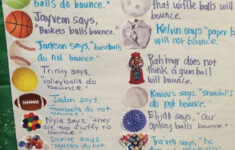 balls do bounce."
Jayveon says,
"Baskets balls bounce."
Jackson says, "baseballs
do not bounce."
Trinity says,
Volleyballs do
bounce.
Jadon says,
do not bounce.
Nyla says, they
are too fluffy to
bounce.
says,
that wiffle balls will
bounce.
Kelvin says "paper b
will not bounce.
Rahmir does not
think a gum ball
will bounce.
says,
do not bounce.
Elijah says, "Our
spikey balls bounce.
says,